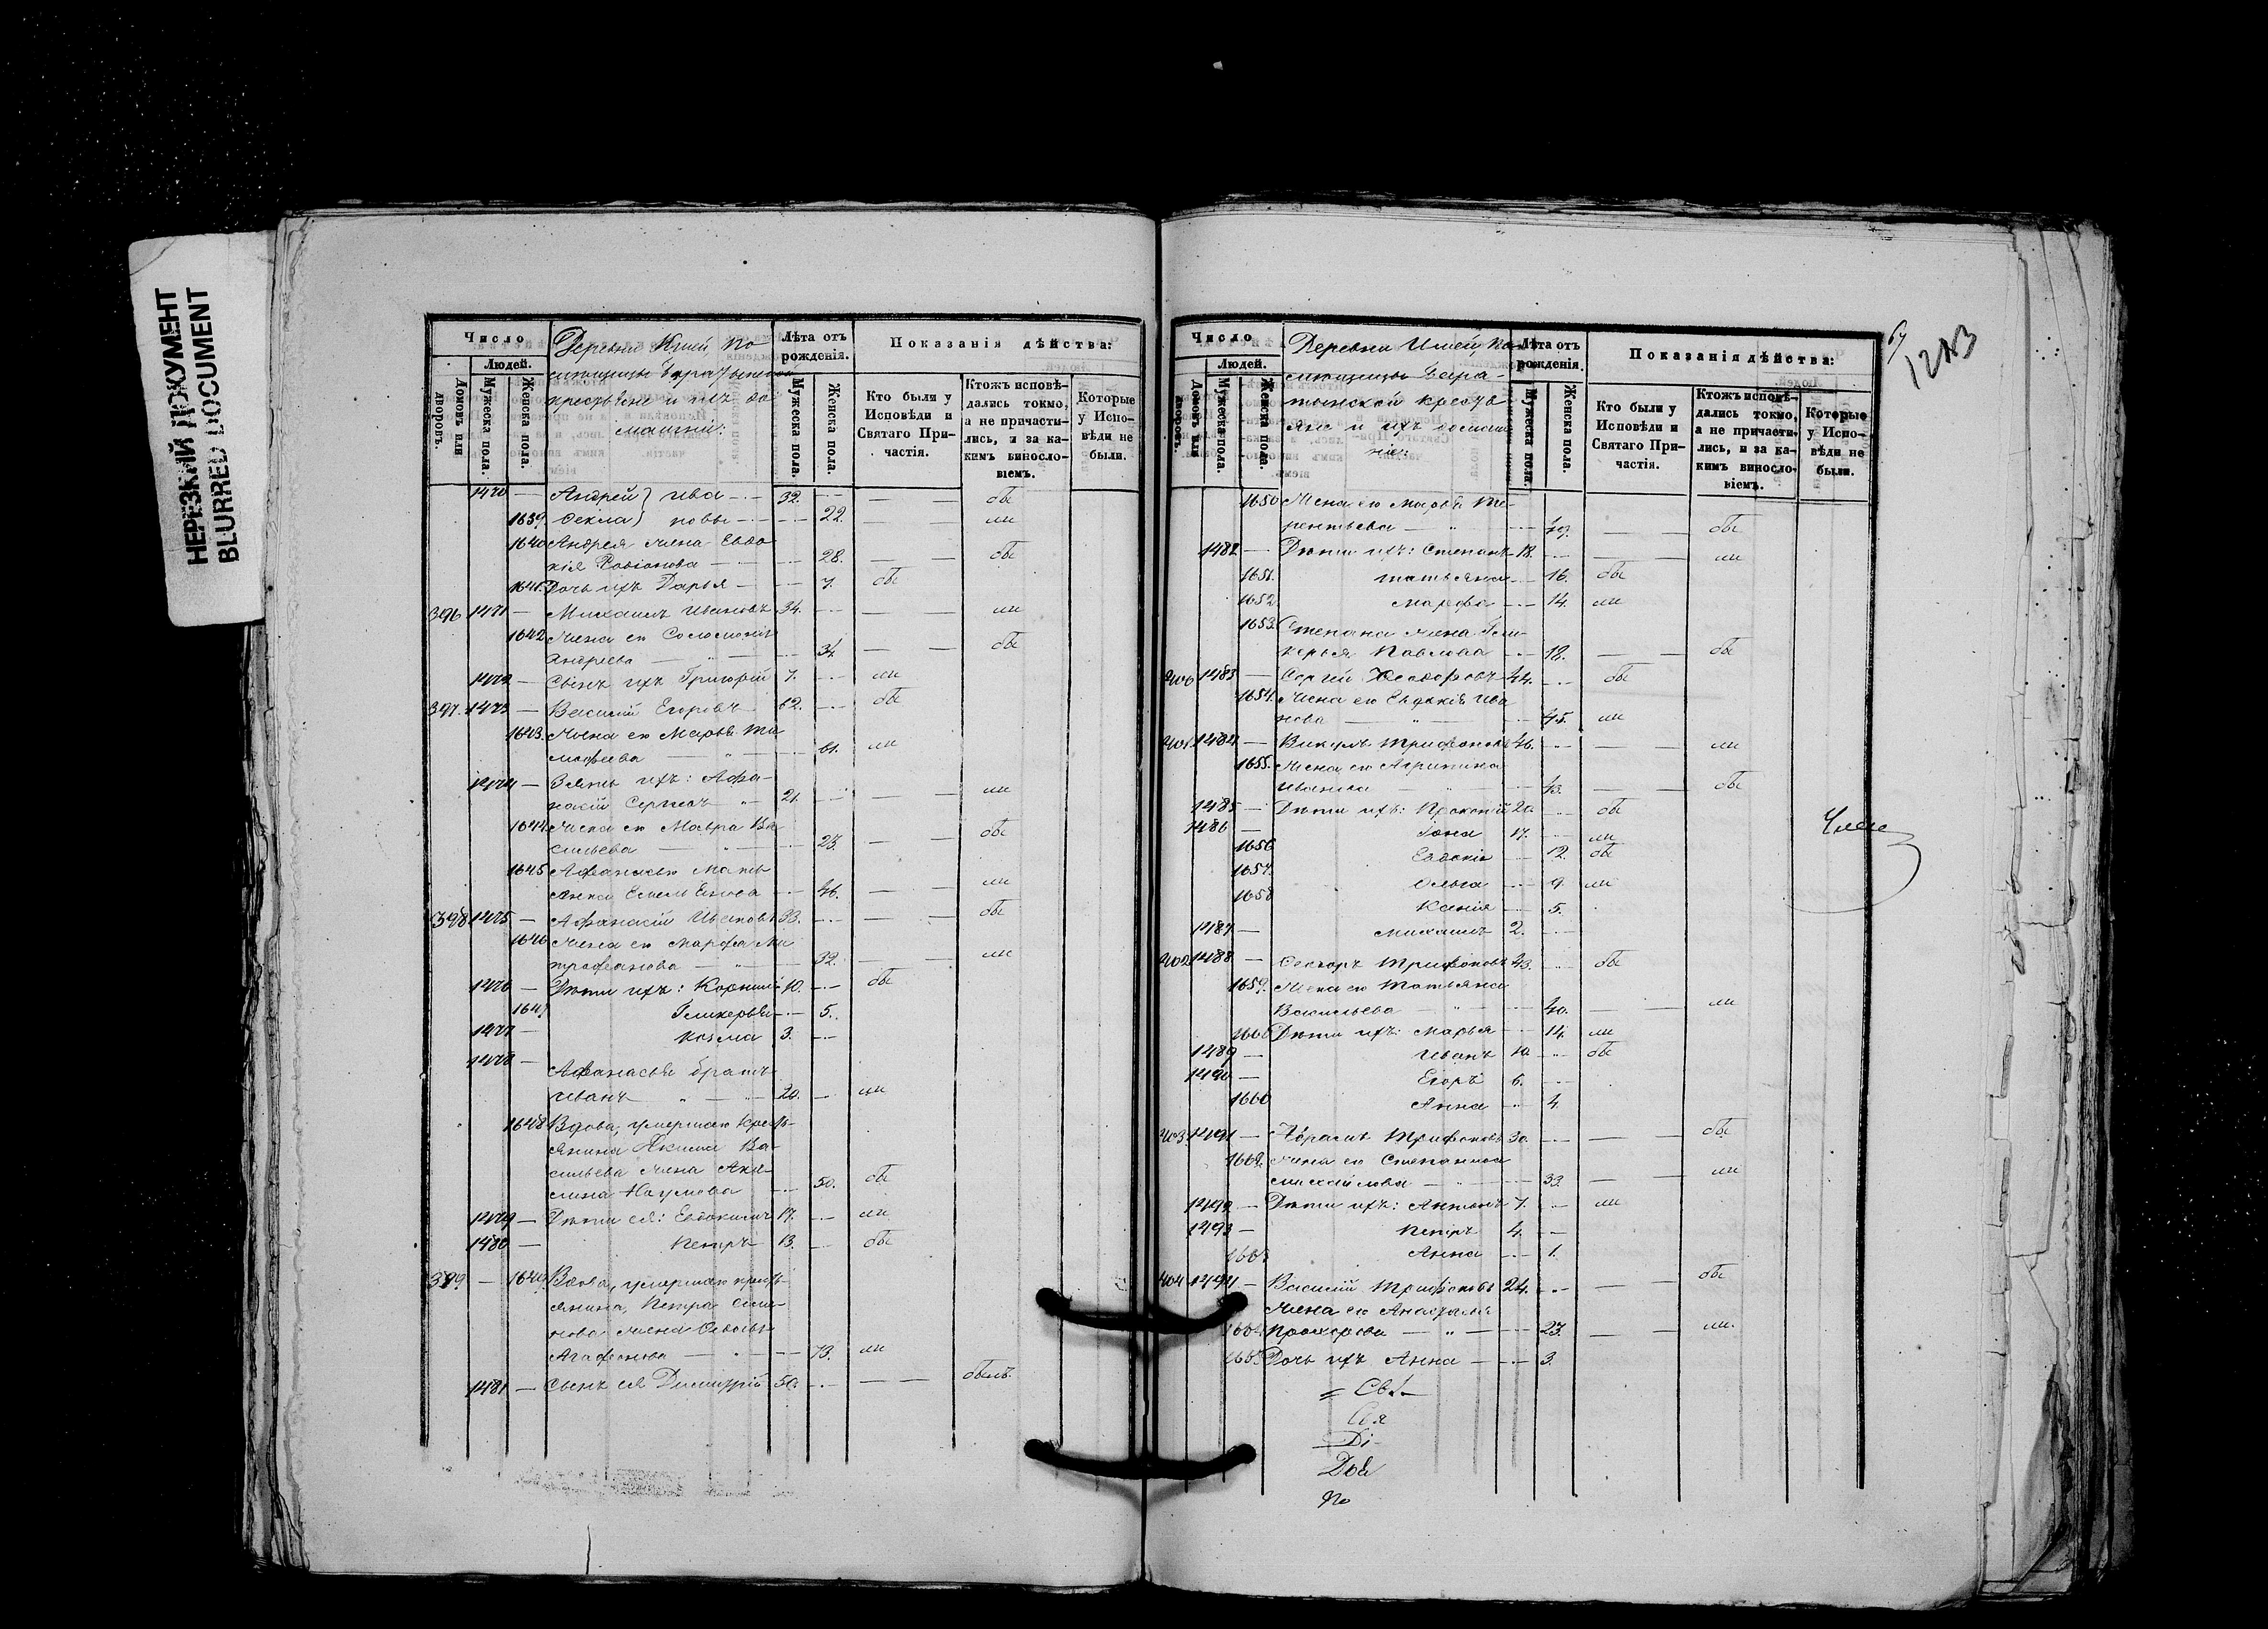 НЕРЕЗКИЙ ДОКУМЕНТ
BLURRED DOCUMENT
Число
Людей.
Домовъ или дворовъ.
Мужеска пола.
Женска пола.
Деревни
крестьяне и ихъ до
машніи:
Лѣта отъ рожденія.
Мужеска пола.
Женска пола.
Показанія дѣйства:
Кто были у Исповѣди и Святаго При-частія.
Ктожъ исповѣ-дались токмо, а не причасти-лись, и за ка-кимъ виносло-віемъ.
Которые у Испо-вѣди не были.
1470 — Андрей } Ива — 32. — — — бы
1639. Фекла } новы — — 22. — — ли
1640 Андрея жена Евдо
кія Родіонова — — 28. — — бы
1641. Дочь ихъ Дарья — — 7. бы
396 1471 — Михаилъ Ивановъ 34. — — — ли
1642 Жена его Соломонія
Андреева — — 34 — — бы
1472 — Сынъ ихъ Григорій 7. — ли
397. 1473 — Василій Егоровъ 62. — бы
1643. Жена его Марья Ти
мофеева — — 61. ли
1474 — Зять ихъ: Афа-
насій Сергѣевъ 21. — — — ли
1644 Жена его Мавра Ва
сильева — — 23. — — бы
1645 Афанасья мать
Анна Емельянова — 46. — — ли
398 1475 — Афанасій Ивановъ 33. — — — бы
1646 Жена его Марфа Ми
трофанова — — 32. — — ли
1476 — Дѣти ихъ: Корнилій 10. — бы
1647 Гликерья — 5.
1477 — Козма 3. —
1478 — Афанасья братъ
Иванъ — 20. — ли
1648 Вдова, умершаго кресть-
янина Якима Ва-
сильева жена Аку-
лина Наумова — 50. бы
1479 — Дѣти ея: Евдокимъ 17. — ли
1480 — Петръ 13. — бы
399. — 1649 Вдова, умершаго кресть-
янина, Петра
нова жена
Агафонова — — 73. ли
1481 — Сынъ ея Димитрій 50. — — — былъ.
Число
Людей.
Домовъ или дворовъ.
Мужеска пола.
Женска пола.
Деревни
тынской кресть
яне и ихъ домаш
ніе:
Лѣта отъ рожденія.
Мужеска пола.
Женска пола.
Показанія дѣйства:
Кто были у Исповѣди и Святаго При-частія.
Ктожъ исповѣ-дались токмо, а не причасти-лись, и за ка-кимъ виносло-віемъ.
Которые у Испо-вѣди не были.
67
1213
1650 Жена его Марья Те-
рентьева — — 49. — — бы
1482 — Дѣти ихъ: Степанъ 18. — — — ли
1651. Татьяна — 16. бы
1652. Марфа — 14. ли
1653. Степана жена Гли-
керья Павлова — 18. — — бы
400 1483 — Сергій Ѳеодоровъ 44. — бы
1654. Жена его Евдокія Ива
нова — — 45. ли
401. 1484 — Трифоновъ 46. — — — ли
1655. Жена его Агрипина
Иванова — 43. — — бы
1485 — Дѣти ихъ: Прокопій 20. — бы
1486 — Іона 17. — ли
1656 Евдокія — 12. бы
1657. Ольга — 9. ли
1658 Ксенія — 5.
1487 — Михаилъ 2. —
402 1488 — Трифоновъ 43. — бы
1659. Жена его Татьяна
Васильева — — 40. — — ли
1660 Дѣти ихъ: Марья — 14. ли
1489 — Иванъ 10 — бы
1490 — Егоръ 6. —
1660 Анна — 4.
403. 1491 — Абрамъ Трифоновъ 30. — — — бы
1662. Жена его Степанида
Михайлова — — 33. — — ли
1492 — Дѣти ихъ: Антонъ 7. — ли
1493 — Петръ 4. —
1663 Анна — 1.
404 1494 — Василій Трифоновъ 24. — — — бы
Жена его Анастасья
1664. Прохорова — — 23. — — ли.
1665 Дочь ихъ Анна — — 3.